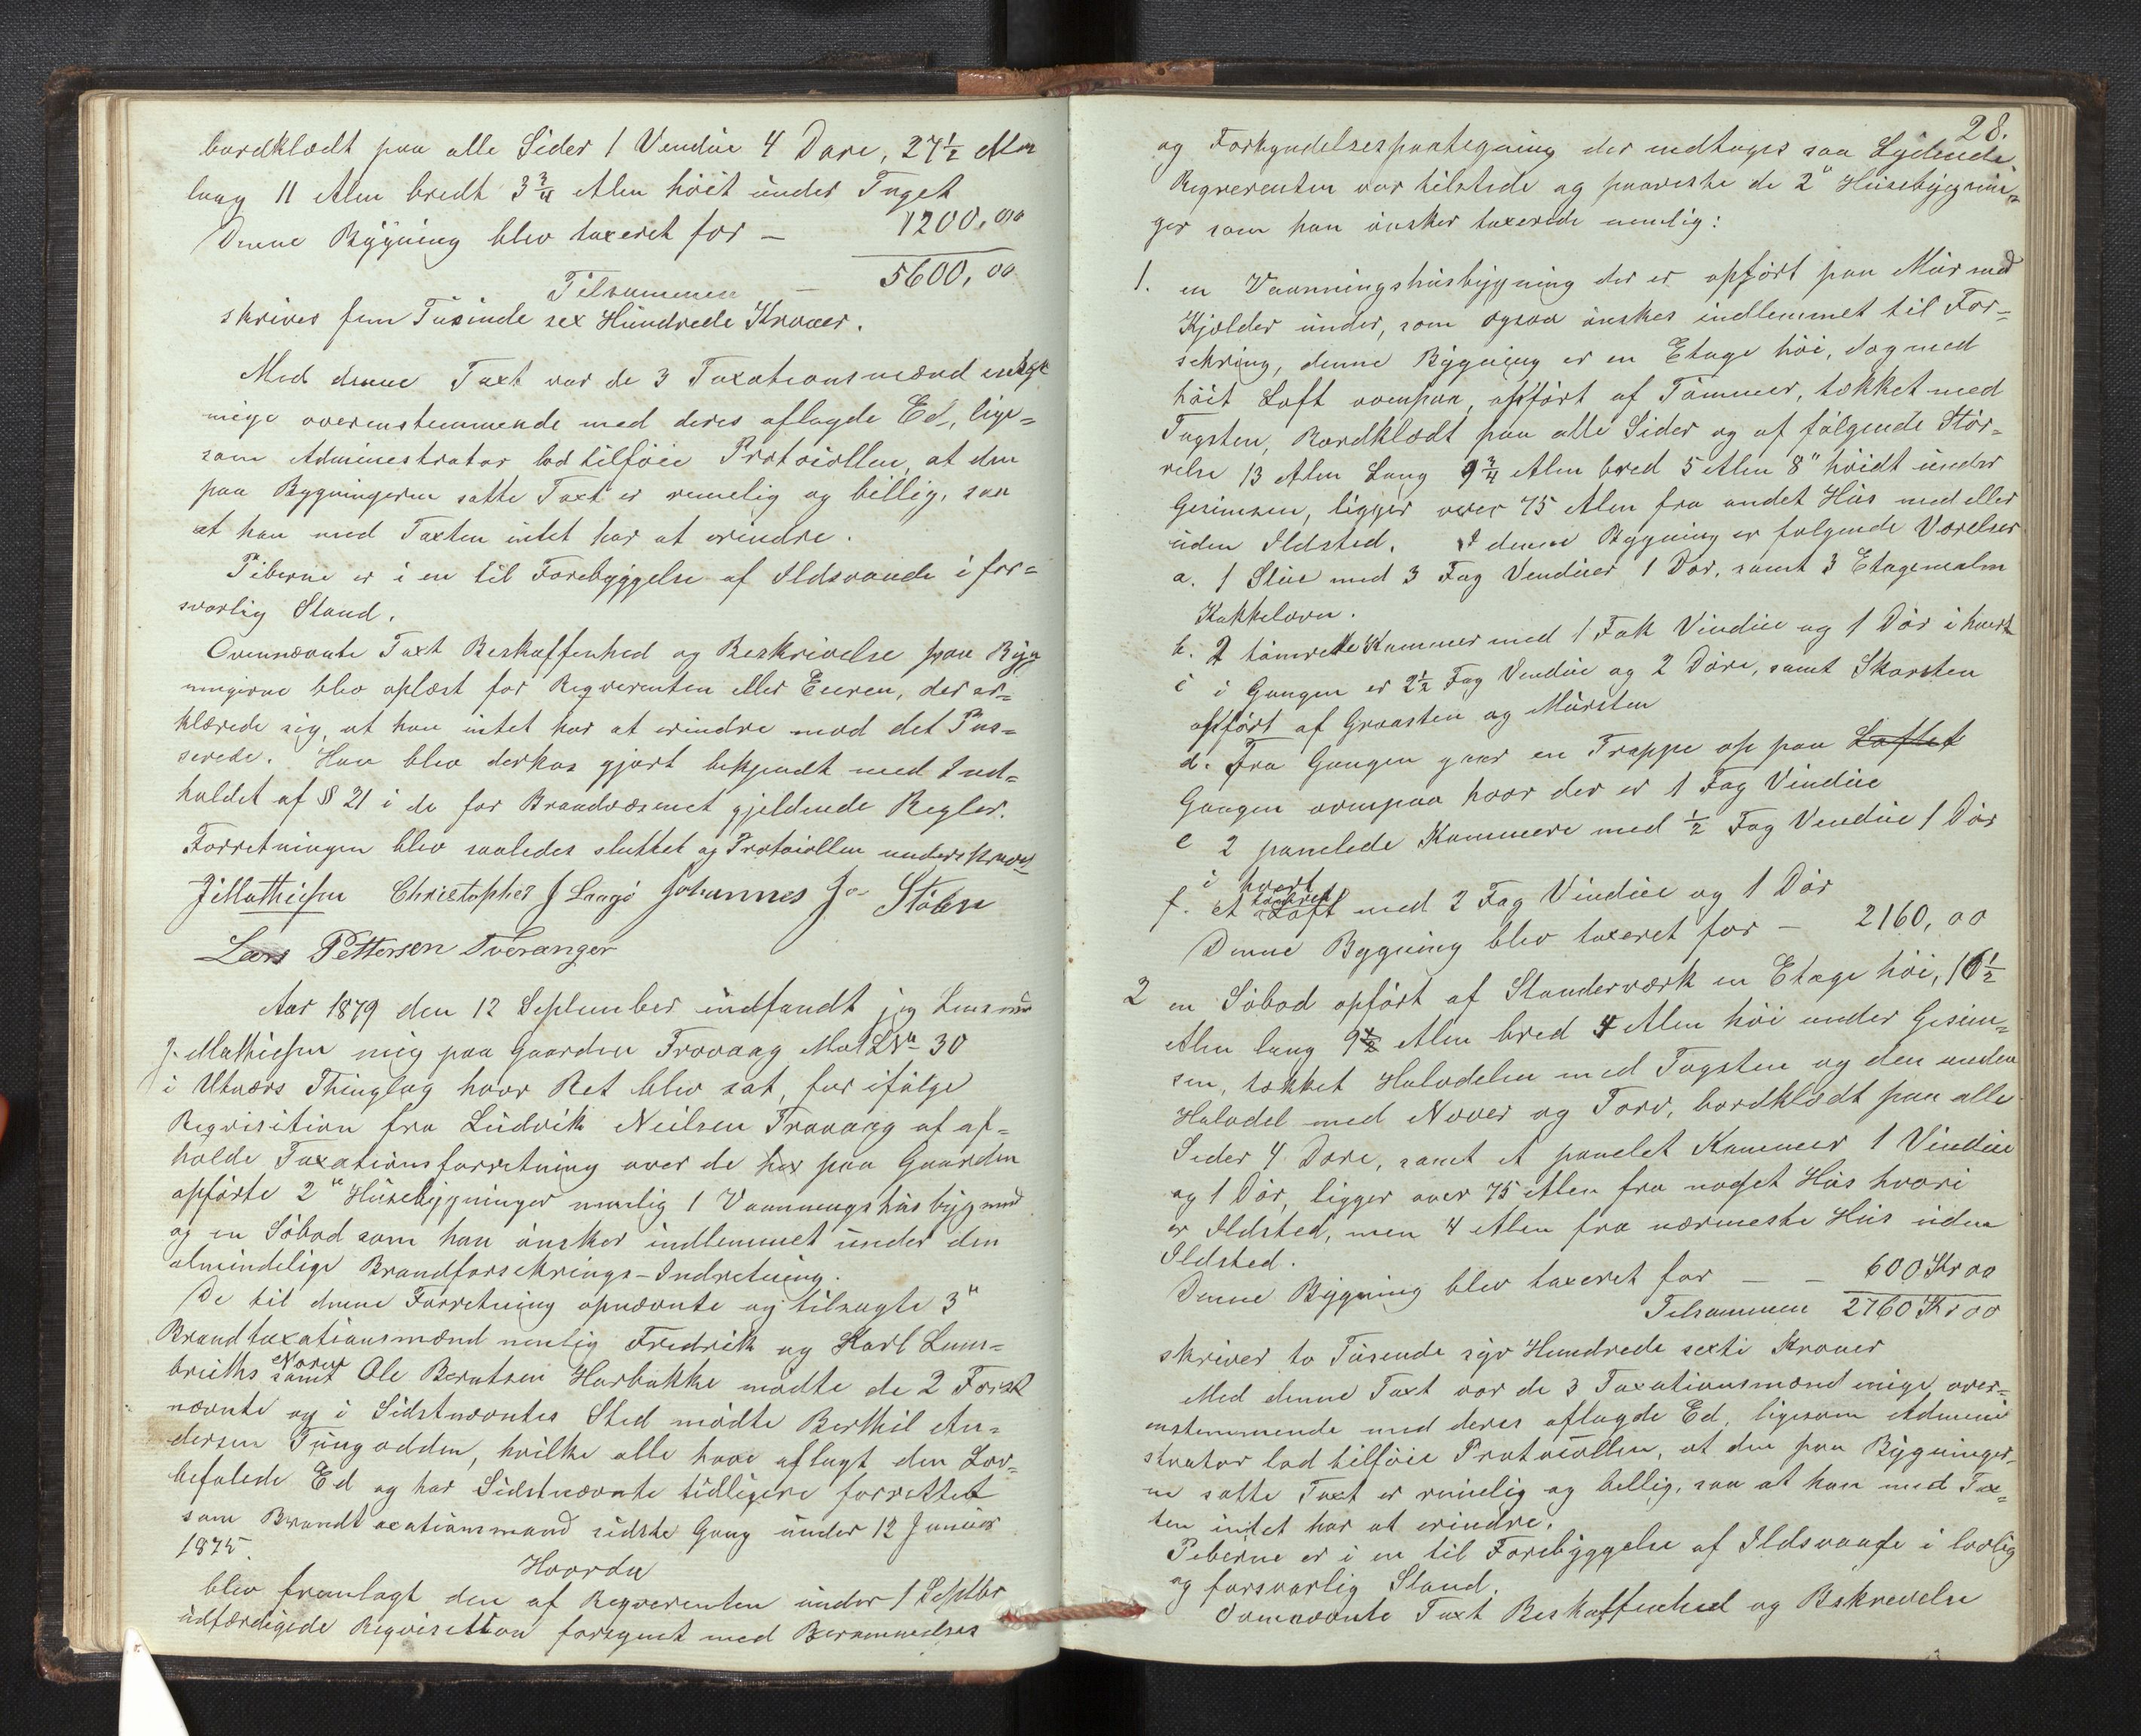 bordklædt paa alle Sider 1 Vendue 4 Dore, 27½ Alen
lang 11 Alen bredt 3¾ Alen höit under Taget
Denne Bÿgning blev taxeret for – 1200,00
Tilsammen – 5600,00
skrives fem Tusinde sex Hundrede Kroner.
Med denne Taxt var de 3 Taxationsmænd
enige overenstemmende med deres aflagde Ed, lige=
som Administrator lod tilföie Protoiollen, at den
paa Bygningerne satte Taxt er remelig og billig, saa
at han mod Taxten intet har at erindre.
Piberne er i en til Forebÿggelse af Ildsvaade i for=
svarlig Stand.
Ovennævnte Taxt Beskaffenhed og Beskrivelse paa Byg
ningerne blev oplæst for Reqverenten eller Eieren, der er=
klærede sig, at han intet har at erindre mod det Pas=
serede. Han blev derhos gjort bekjendt med Ind=
holdet af § 21 i de for Brandvæsenet gjeldende Regler.
Forretningen blev saaledes sluttet og Protoiollen underskreven
J Mathiesen Christopher J Langö Johannes J Stölen
Lars Pettersen Tveranger
Aar 1879 den 12 September indfandt jeg Lensmd
J. Mathiesen mig paa Gaarden Trovaag Mat LNo 30
i Utværs Thinglag hvor Ret blev sat, for ifölge
Reqvisition fra Ludvik Neilsen Trovaag at af=
holde Taxationsforretning over de her paa Gaarden
opförte 2" Husebÿgninger nemlig 1 Vaanningshusbÿgning
og en Söbod som han önsker indlemmet under den
almindelige Brandforsekrings-Indretning.
De til denne Forretning opnævnte og tilsagte 3"
Brandtaxationsmænd nemlig Fredrik og Karl Lum=
briths Norus samt Ole Berntsen Harbakke mödte de 2 Först
nævnte og i Sidstnævntes Sted mödte Berthil An=
dersen Tungodden, hvilke alle have aflagt den Lov=
befalede Ed og har Sidstnævnte tidligere forrettet
som Brandtaxationsmand sidste Gang under 12 Januar
1875.
Hvorda
blev fremlagt den af Reqverenten under 1 Septbr
udfærdigede Reqvisition forsÿnet med Berammelses

28.
og Forkyndelsespaategning der indtages saa Lydende
Reqverenten var tilstede og paaviste de 2" Husebÿgnin=
ger som han önsker taxerede nemlig:
1. en Vaanningshusbÿgning der er opfört paa Mur med
Kjelder under, som ogsaa önskes indlemmet til For=
sekring, denne Bÿgning er en Etage höi, dog med
höit Loft ovenpaa, opfört af Tömmer, tækket med
Tagsten, Bordklædt paa alle Sider og af fölgende Stör=
relse 13 Alen Lang 9¾ Alen bred 5 Alen 8" höidt under
Gesimsen, ligger over 75 Alen fra andet Hus med eller
uden Ildsted. I denne Bygning er folgende Værelser
a. 1 Stue med 3 Fag Venduer 1 Dör, samt 3 Etagers malm
Kakkelovn.
b. 2 tömrede Kammer med 1 Fak Vindue og 1 Dör i hvert
c i Gangen er 2½ Fag Vendue og 2 Döre, samt Skorsten
opfört af Graasten og Mursten
d. Fra Gangen gaar en Trappe op paa Loftet
Gangen ovenpaa hvor der er 1 Fag Vindue
e 2 panelede Kammere med ½ Fag Vendue 1 Dör
i hvert
f. et tömret Loft med 2 Fag Vindue og 1 Dör
Denne Bygning blev taxeret for – 2160,00
2 en Söbod opfört af Standerværk en Etage höi, 16½
Alen lang 9½ Alen bred 4 Alen höi under Gesim=
sen, tækket Halvdelen med Tagsten og den anden
Halvdel med Næver og Torv, bordklædt paa alle
Seder 4 Dore, samt et panelet Kammer 1 Vindue
og 1 Dör, ligger over 75 Alen fra noget Hus hvori
er Ildsted, men 4 Alen fra nærmeste Hus uden
Ildsted.
Denne Bÿgning blev taxeret for – – 600 Kr 00
Tilsammen 2760 Kr 00
skriver to Tusende syv Hundrede sexti Kroner
Med denne Taxt var de 3 Taxationsmænd enige over=
enstemmende med deres aflagde Ed, ligesom Admini
strator lod tilföie Protoiollen, at den paa Bÿgninger=
ne satte Taxt er rimelig og billig, saa at han mod Tax=
ten intet har at erindre.
Peberne er i en til Forebÿggelse af Ildsvaade i lovlig
og forsvarlig Stand.
Ovennævnte Taxt Beskaffenhed og Beskrevelse